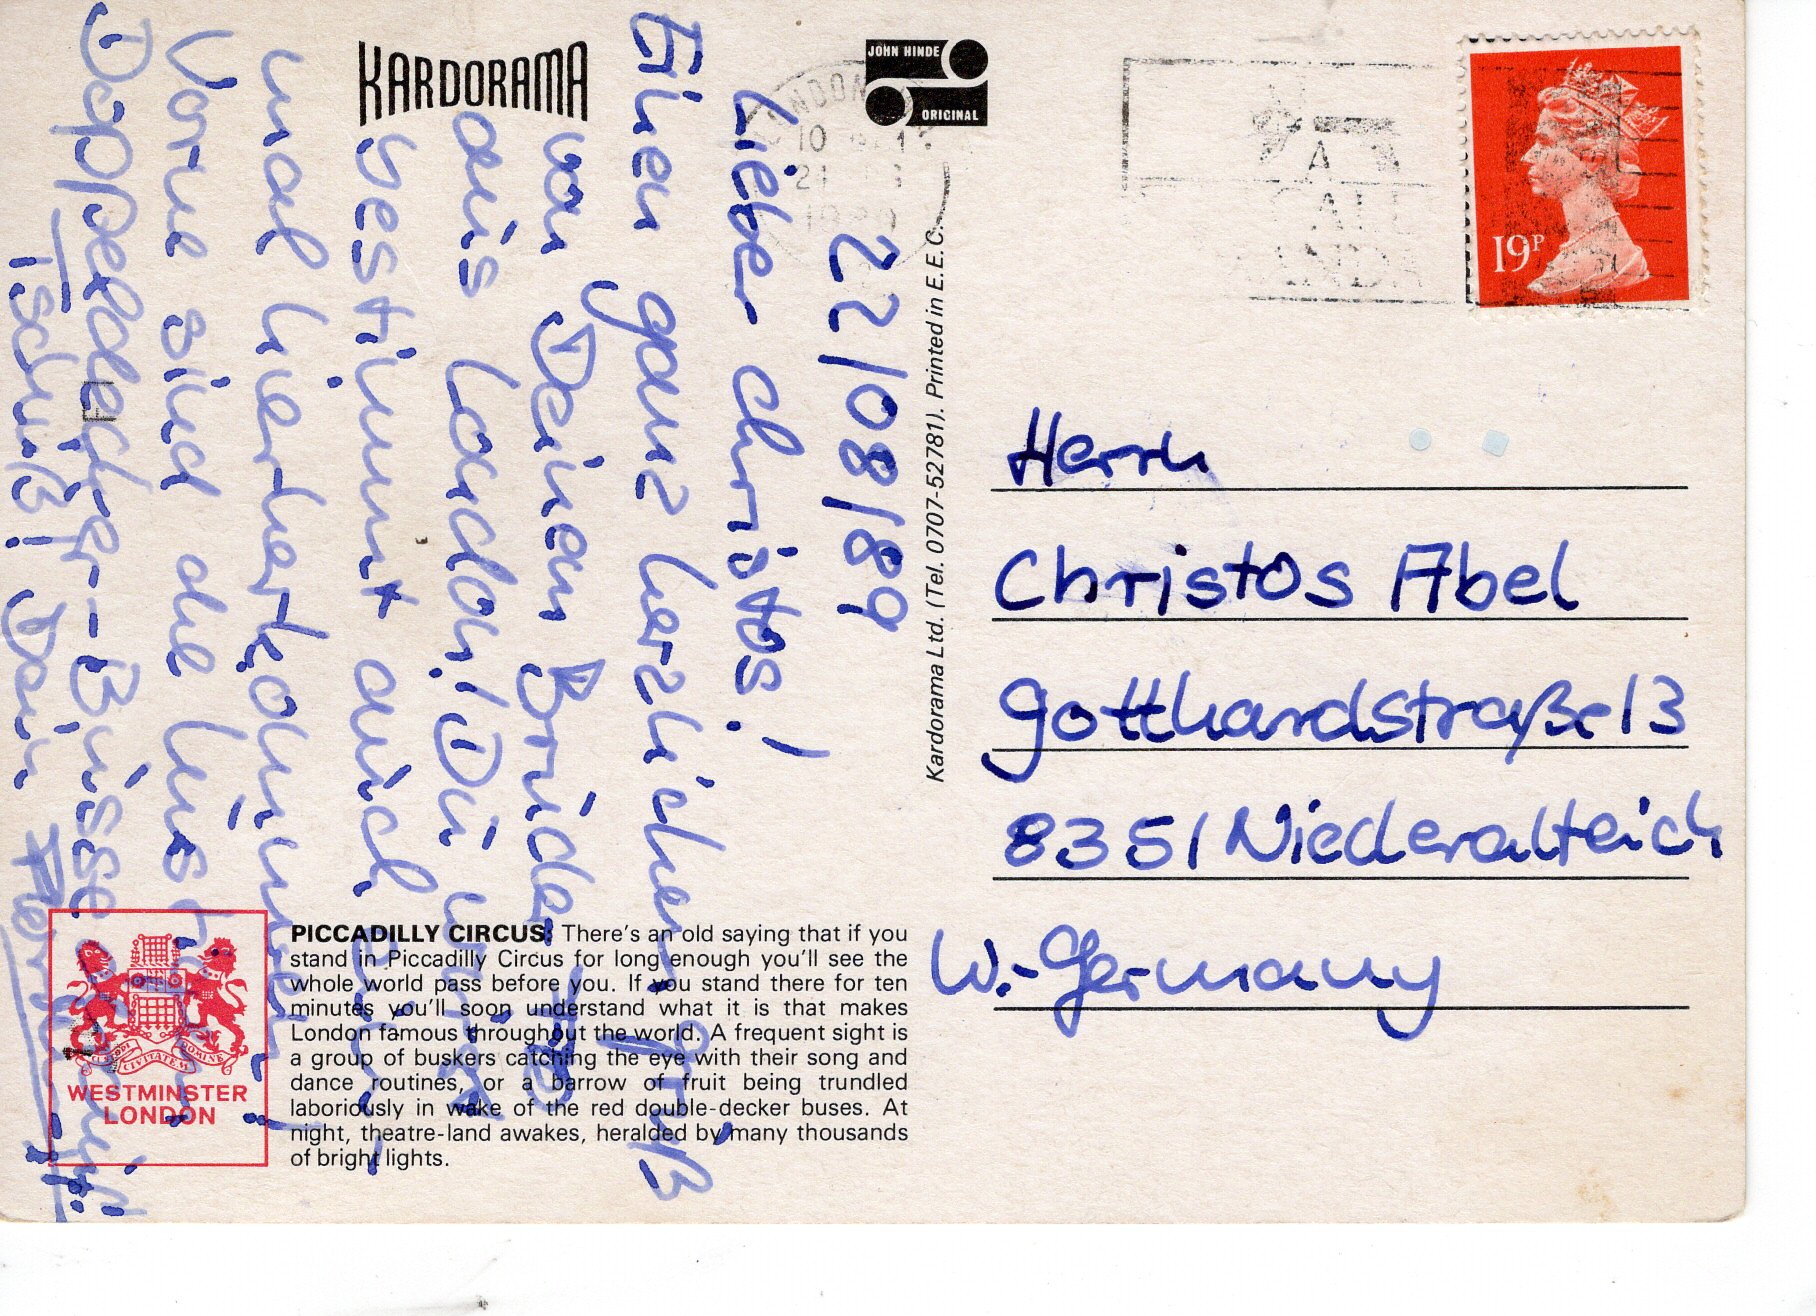 KARDORAMA
JOHN HINDE
ORIGINAL
LONDON
19P
22/08/89
Lieber Christos!
Einen ganz herzlichen Gruß
von Deinem Bruder
aus London! Du wirst
bestimmt auch
mal hierherkommen!
Vorne sind die
Doppeldecker-Busse
Tschüß! Dein
Kardorama Ltd. (Tel. 0707-52781). Printed in E.E.C.
Herrn
Christos Abel
Gotthardstraße 13
8351 Niederalteich
W.-Germany
PICCADILLY CIRCUS: There's an old saying that if you
stand in Piccadilly Circus for long enough you'll see the
whole world pass before you. If you stand there for ten
minutes you'll soon understand what it is that makes
London famous throughout the world. A frequent sight is
a group of buskers catching the eye with their song and
dance routines, or a barrow of fruit being trundled
laboriously in wake of the red double-decker buses. At
night, theatre-land awakes, heralded by many thousands
of bright lights.
CUSTODI CIVITATEM DOMINE
WESTMINSTER
LONDON